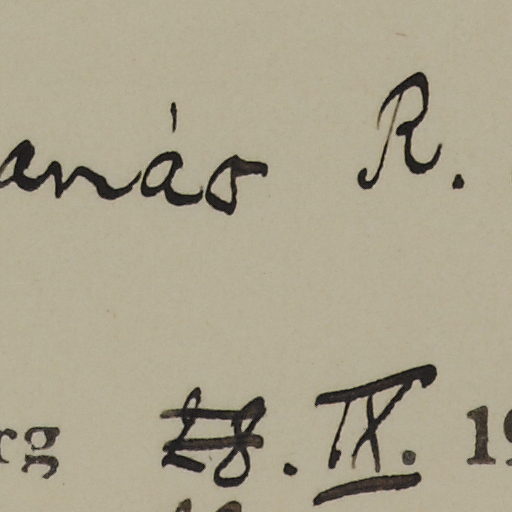 anás R.
rg 28. IX. 19